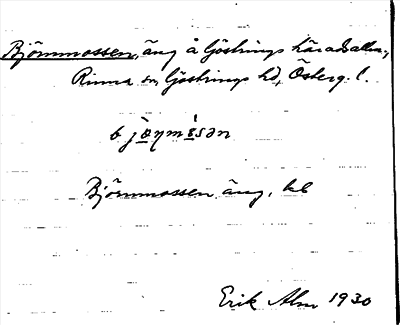 Björnmossen, äng å Göstrings häradsallm.,
Rinna sn, Göstrings hd, Österg. l.
Björnmossen äng,
Erik Alm 1930